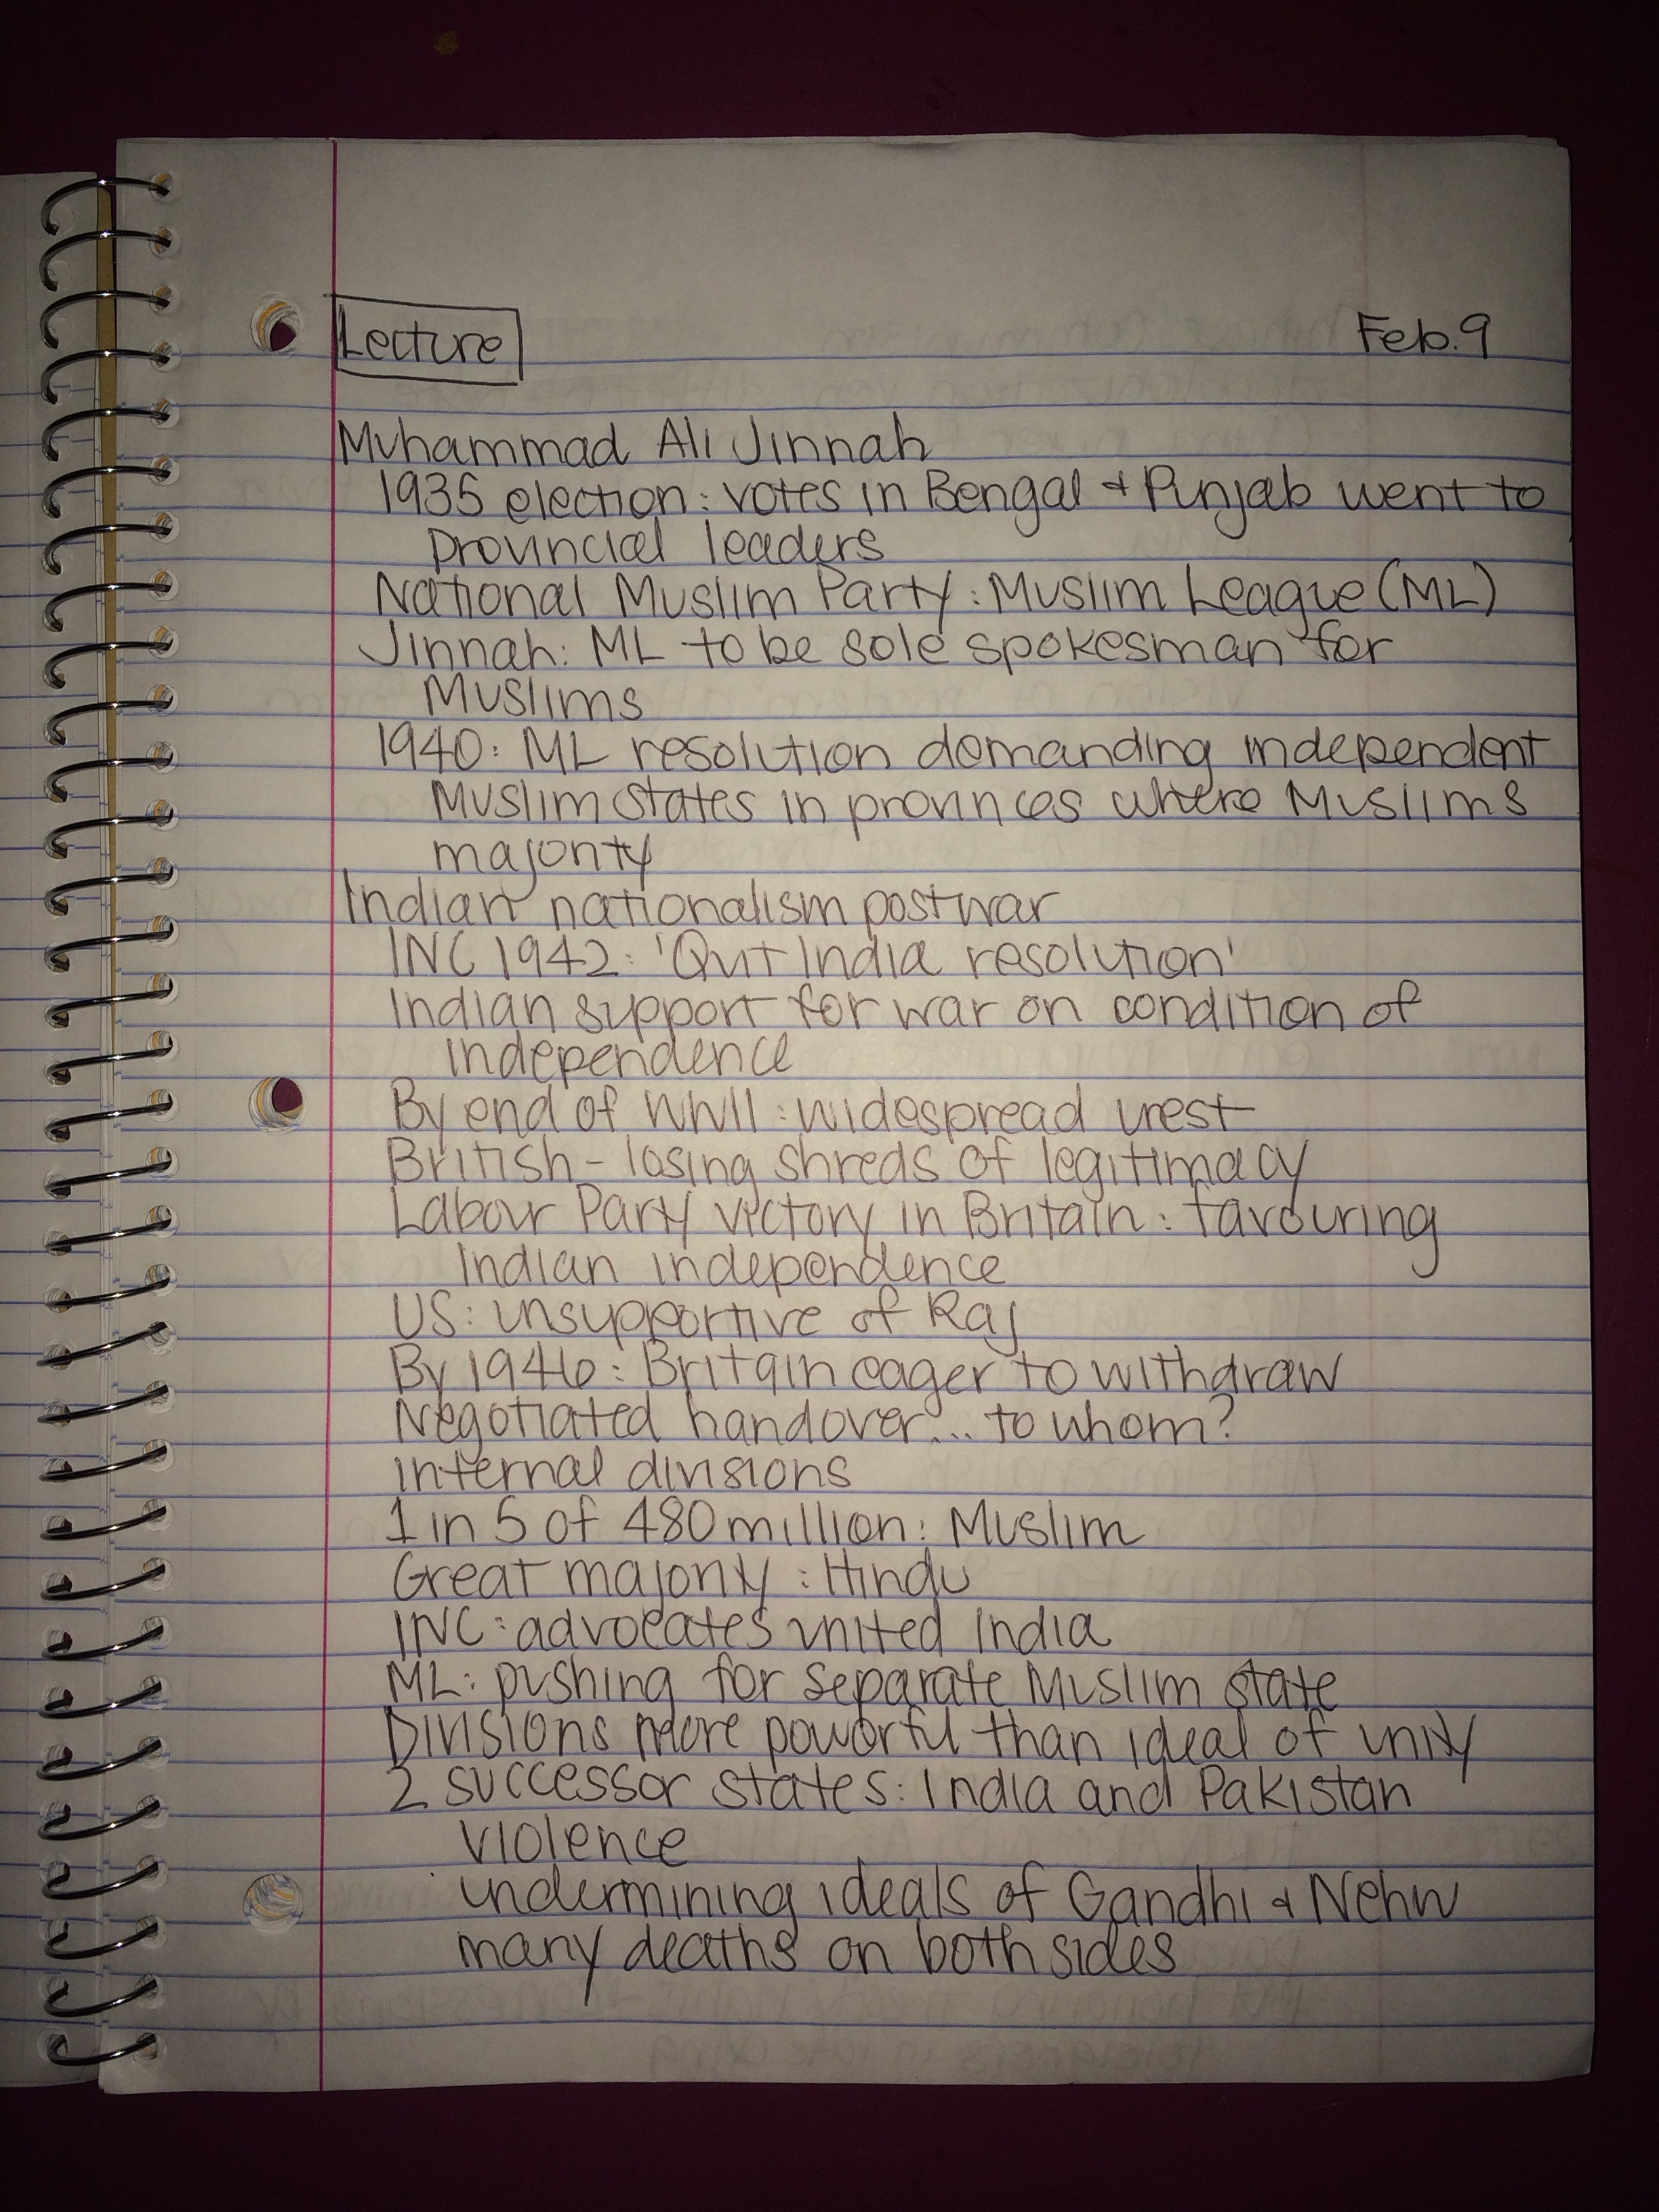 Lecture
Feb. 9
Muhammad Ali Jinnah
1935 election: votes in Bengal + Punjab went to
provincial leaders
National Muslim Party: Muslim League (ML)
Jinnah: ML to be sole spokesman for
Muslims
1940: ML resolution demanding independent
Muslim states in provinces where Muslims
majority
Indian nationalism postwar
INC 1942: 'Quit India resolution'
Indian support for war on condition of
independence
By end of WWII: widespread urest
British - losing shreds of legitimacy
Labour Party victory in Britain: favouring
Indian independence
US: unsupportive of Raj
By 1946: Britain eager to withdraw
Negotiated handover... to whom?
internal divisions
1 in 5 of 480 million: Muslim
Great majority: Hindu
INC: advocates united India
ML: pushing for separate Muslim state
Divisions more powerful than ideal of unity
2 successor states: India and Pakistan
violence
undermining ideals of Gandhi + Nehru
many deaths on both sides